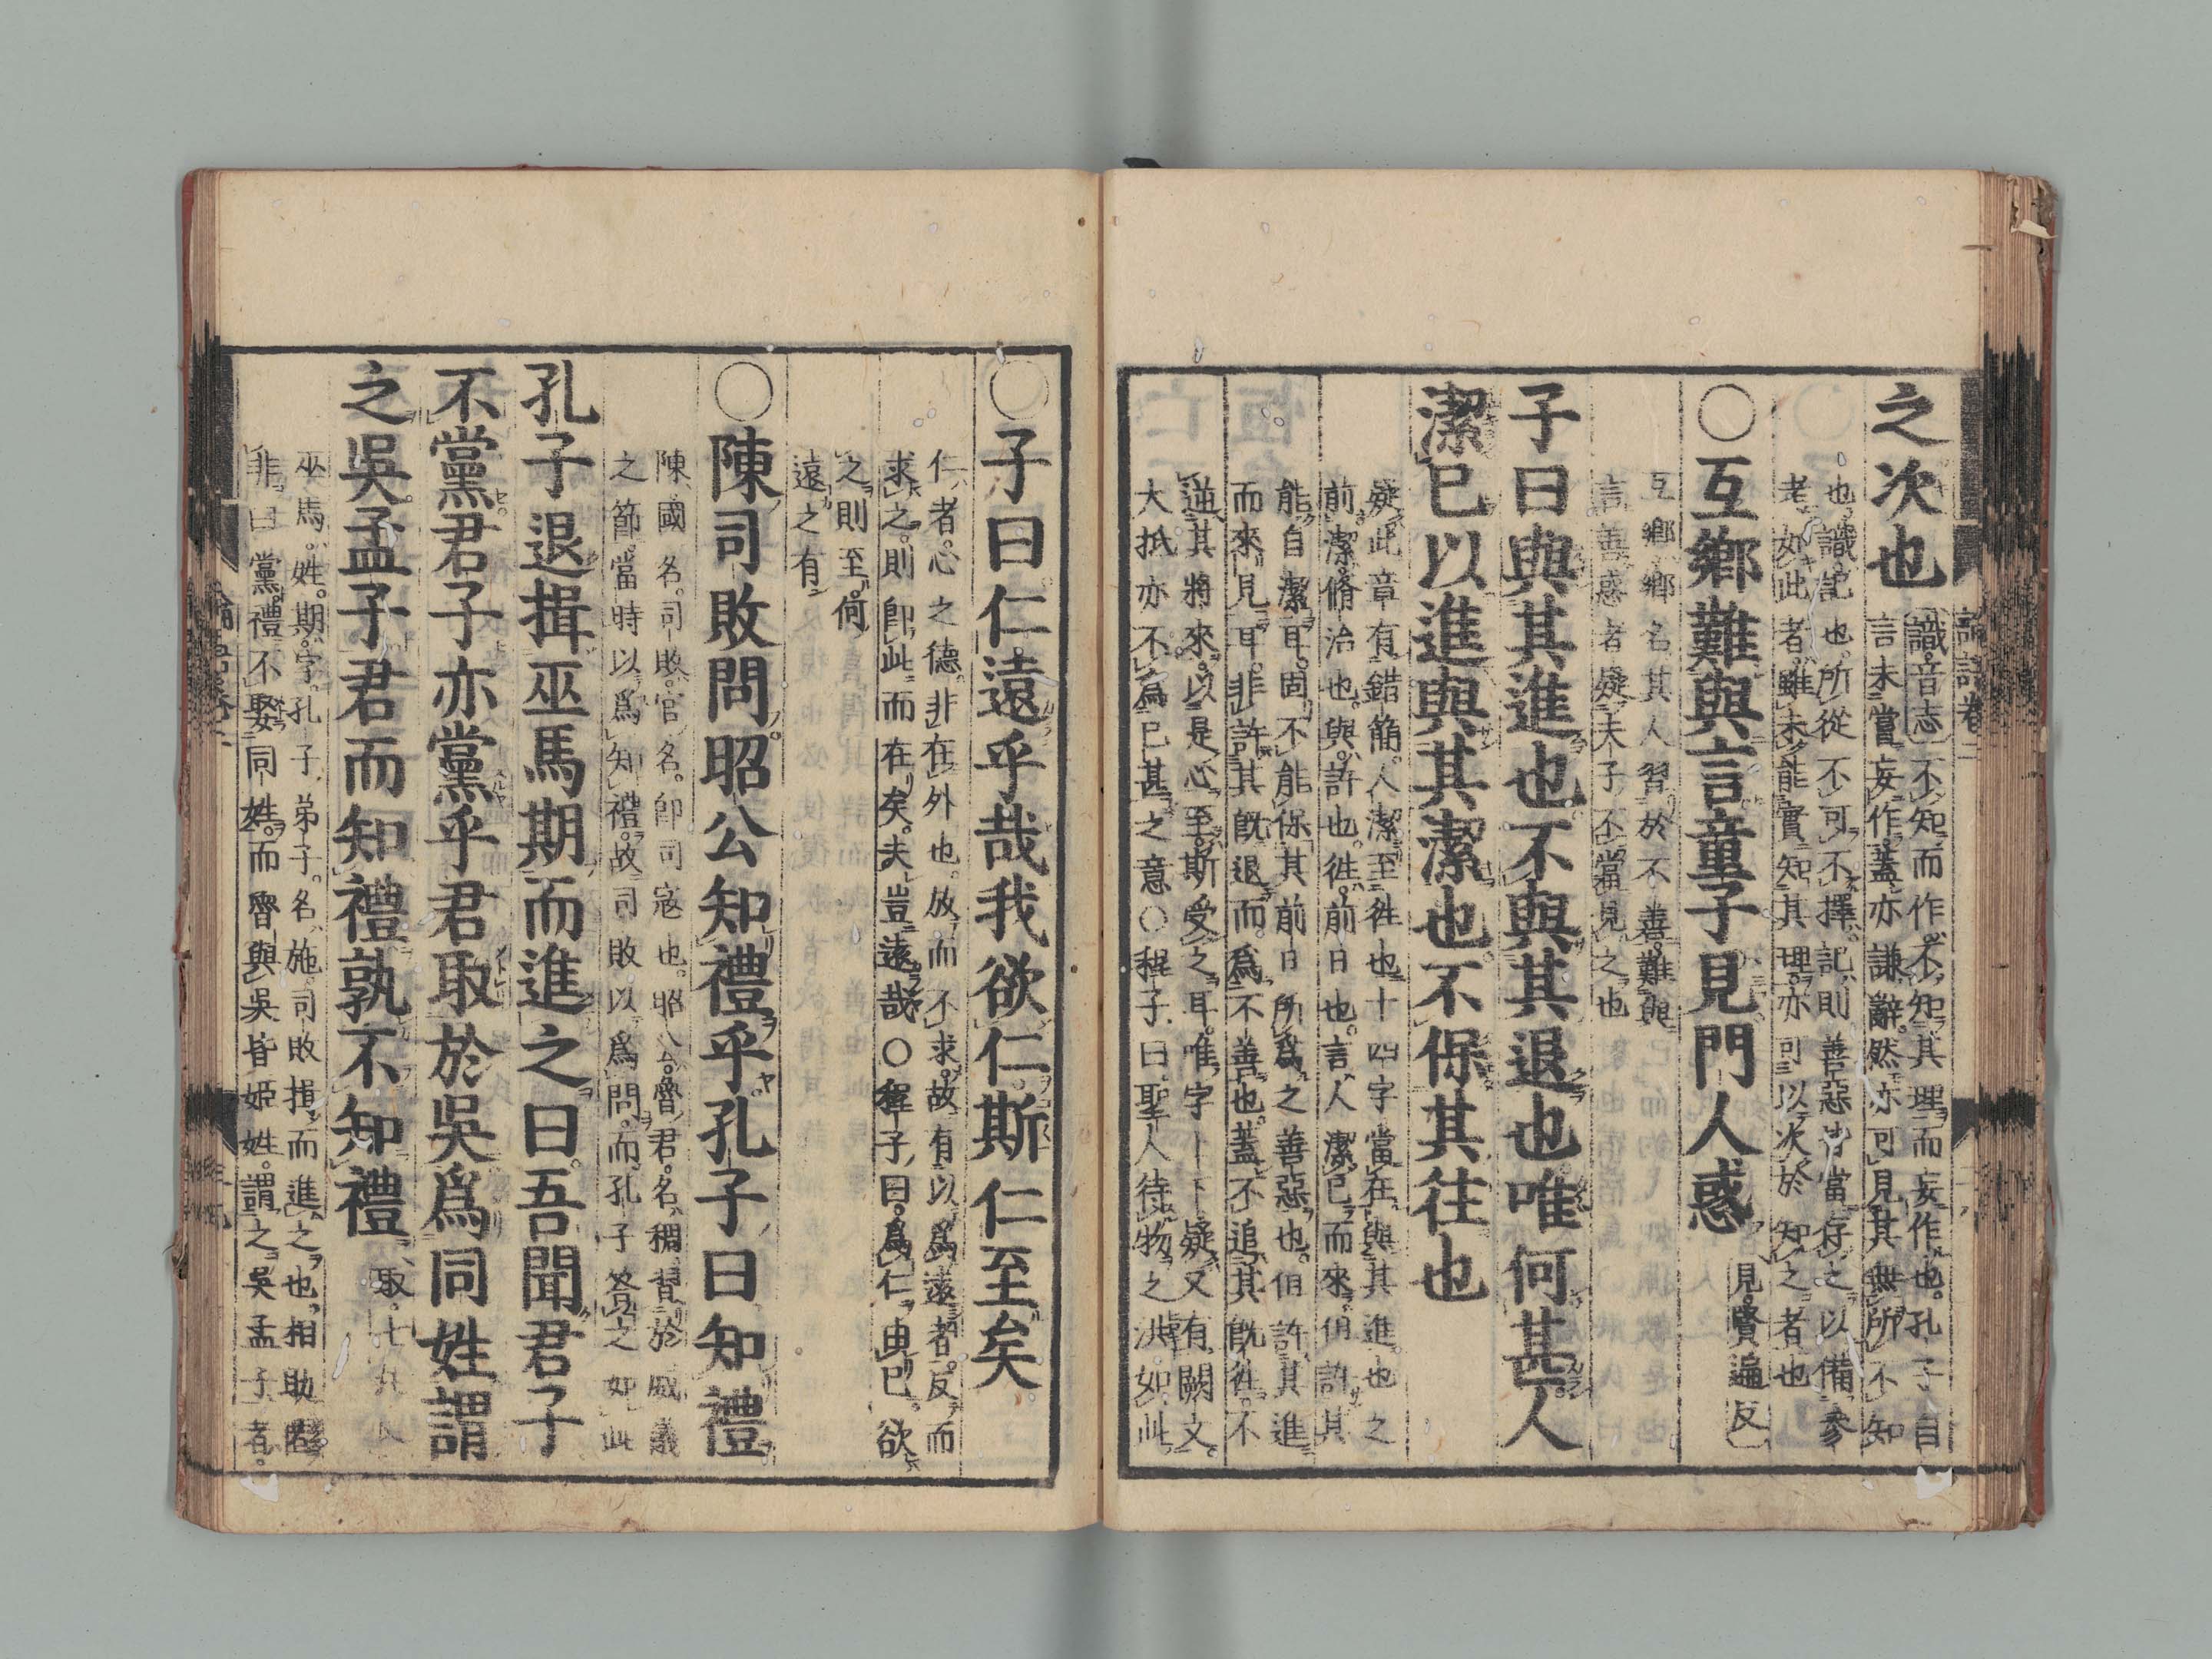 之次也
識音志不知而作不知其理而妄作也孔子自
言未嘗妄作蓋亦謙辭然亦可見其無所不知
也識記也所從不可不擇記則善惡皆當存之以備參
考如此者雖未能實知其理亦可以次於知之者也
○互鄉難與言童子見門人惑
見賢遍反
互鄉鄉名其人習於不善難與
言善惑者疑夫子不當見之也
子曰與其進也不與其退也唯何甚人
潔已以進與其潔也不保其往也
疑此章有錯簡人潔至徃也十四字當在與其進也之
前潔脩治也與許也徃前日也言人潔已而來但許其
能自潔耳固不能保其前日所爲之善惡也但許其進
而來見耳非許其旣退而爲不善也蓋不追其旣徃不
逆其將來以是心至斯受之耳唯字上下疑又有闕文
大抵亦不爲已甚之意○程子曰聖人待物之洪如此
○子曰仁遠乎哉我欲仁斯仁至矣
仁者心之德非在外也放而不求故有以爲遠者反而
求之則卽此而在矣夫豈遠哉○程子曰爲仁由已欲
之則至何
遠之有
○陳司敗問昭公知禮乎孔子曰知禮
陳國名司敗官名卽司寇也昭公魯君名稠習於威儀
之節當時以爲知禮故司敗以爲問而孔子答之如此
孔子退揖巫馬期而進之曰吾聞君子
不黨君子亦黨乎君取於吳爲同姓謂
之吳孟子君而知禮孰不知禮
取七九反
巫馬姓期字孔子弟子名施司敗揖而進之也相助匿
非曰黨禮不娶同姓而魯與吳皆姬姓謂之吳孟子者